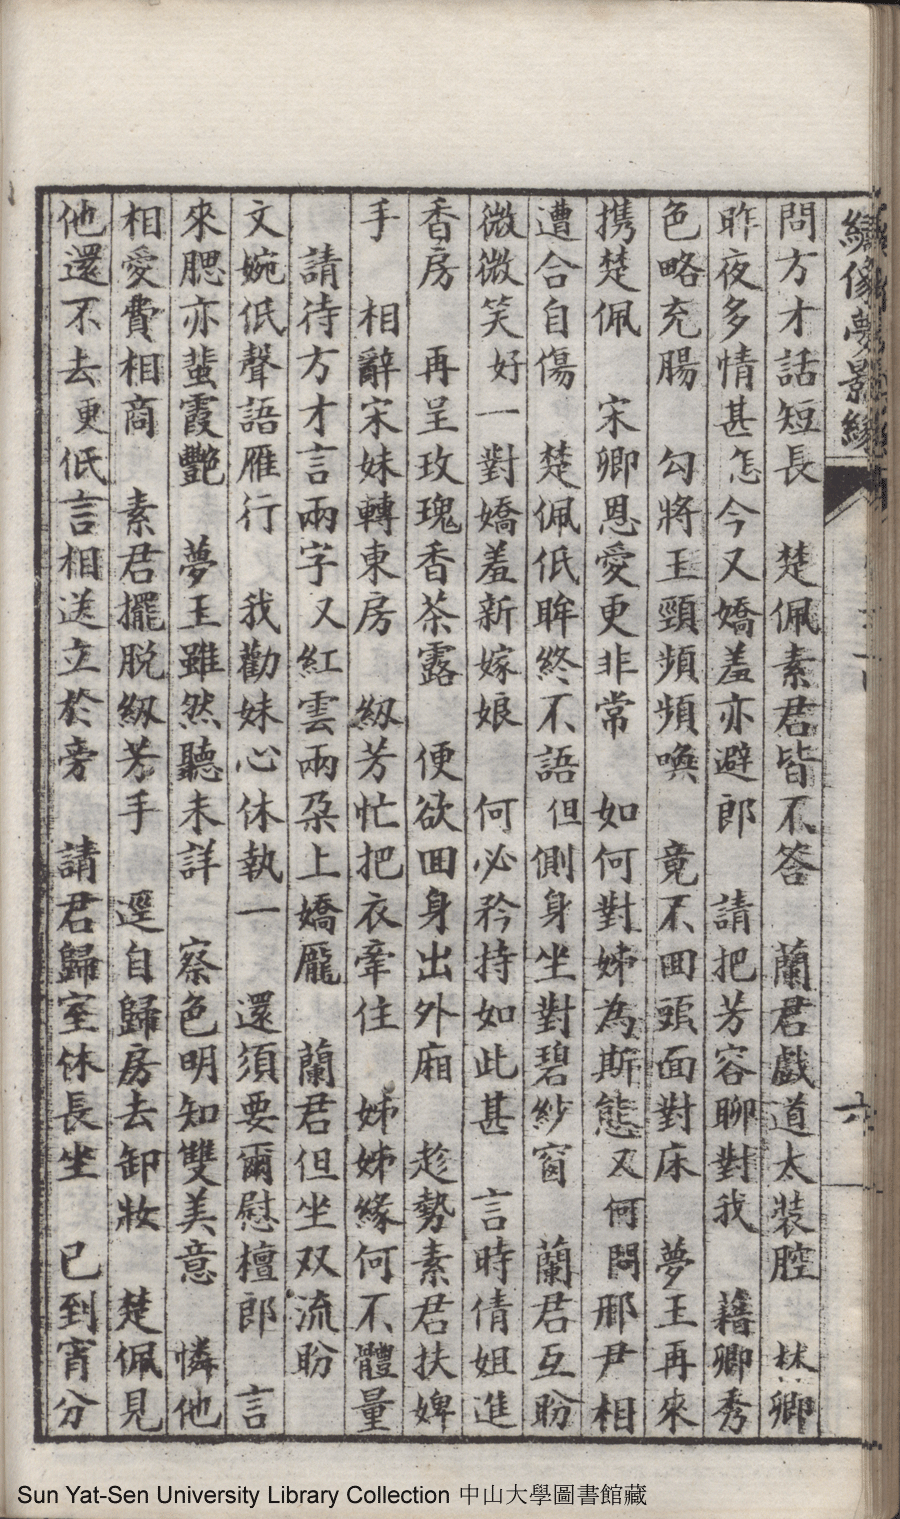 繡像夢影緣
六
問方才話短長　楚佩素君皆不答　蘭君戲道太裝腔　林卿
昨夜多情甚怎今又嬌羞亦避郎　請把芳容聊對我　藉卿秀
色略充腸　勾將玉頸頻頻喚　竟不囬頭面對床　夢玉再來
携楚佩　宋卿恩愛更非常　如何對姊為斯態又何問邢尹相
遭合自傷　楚佩低眸終不語但側身坐對碧紗窗　蘭君互盼
微微笑好一對嬌羞新嫁娘　何必矜持如此甚　言時倩姐進
香房　再呈玫瑰香茶露　便欲囬身出外廂　趁勢素君扶婢
手　相辭宋妹轉東房　紉芳忙把衣牽住　姊姊緣何不體量
　請待方才言兩字又紅雲兩朶上嬌龐　蘭君但坐双流盼
文婉低聲語雁行　我勸妹心休執一　還須要爾慰檀郎　言
來腮亦蜚霞艷　夢玉雖然聽未詳　察色明知雙美意　憐他
相愛費相商　素君擺脫紉芳手　逕自歸房去卸妝　楚佩見
他還不去更低言相送立於旁　請君歸室休長坐　已到宵分
Sun Yat-Sen University Library Collection 中山大學圖書館藏